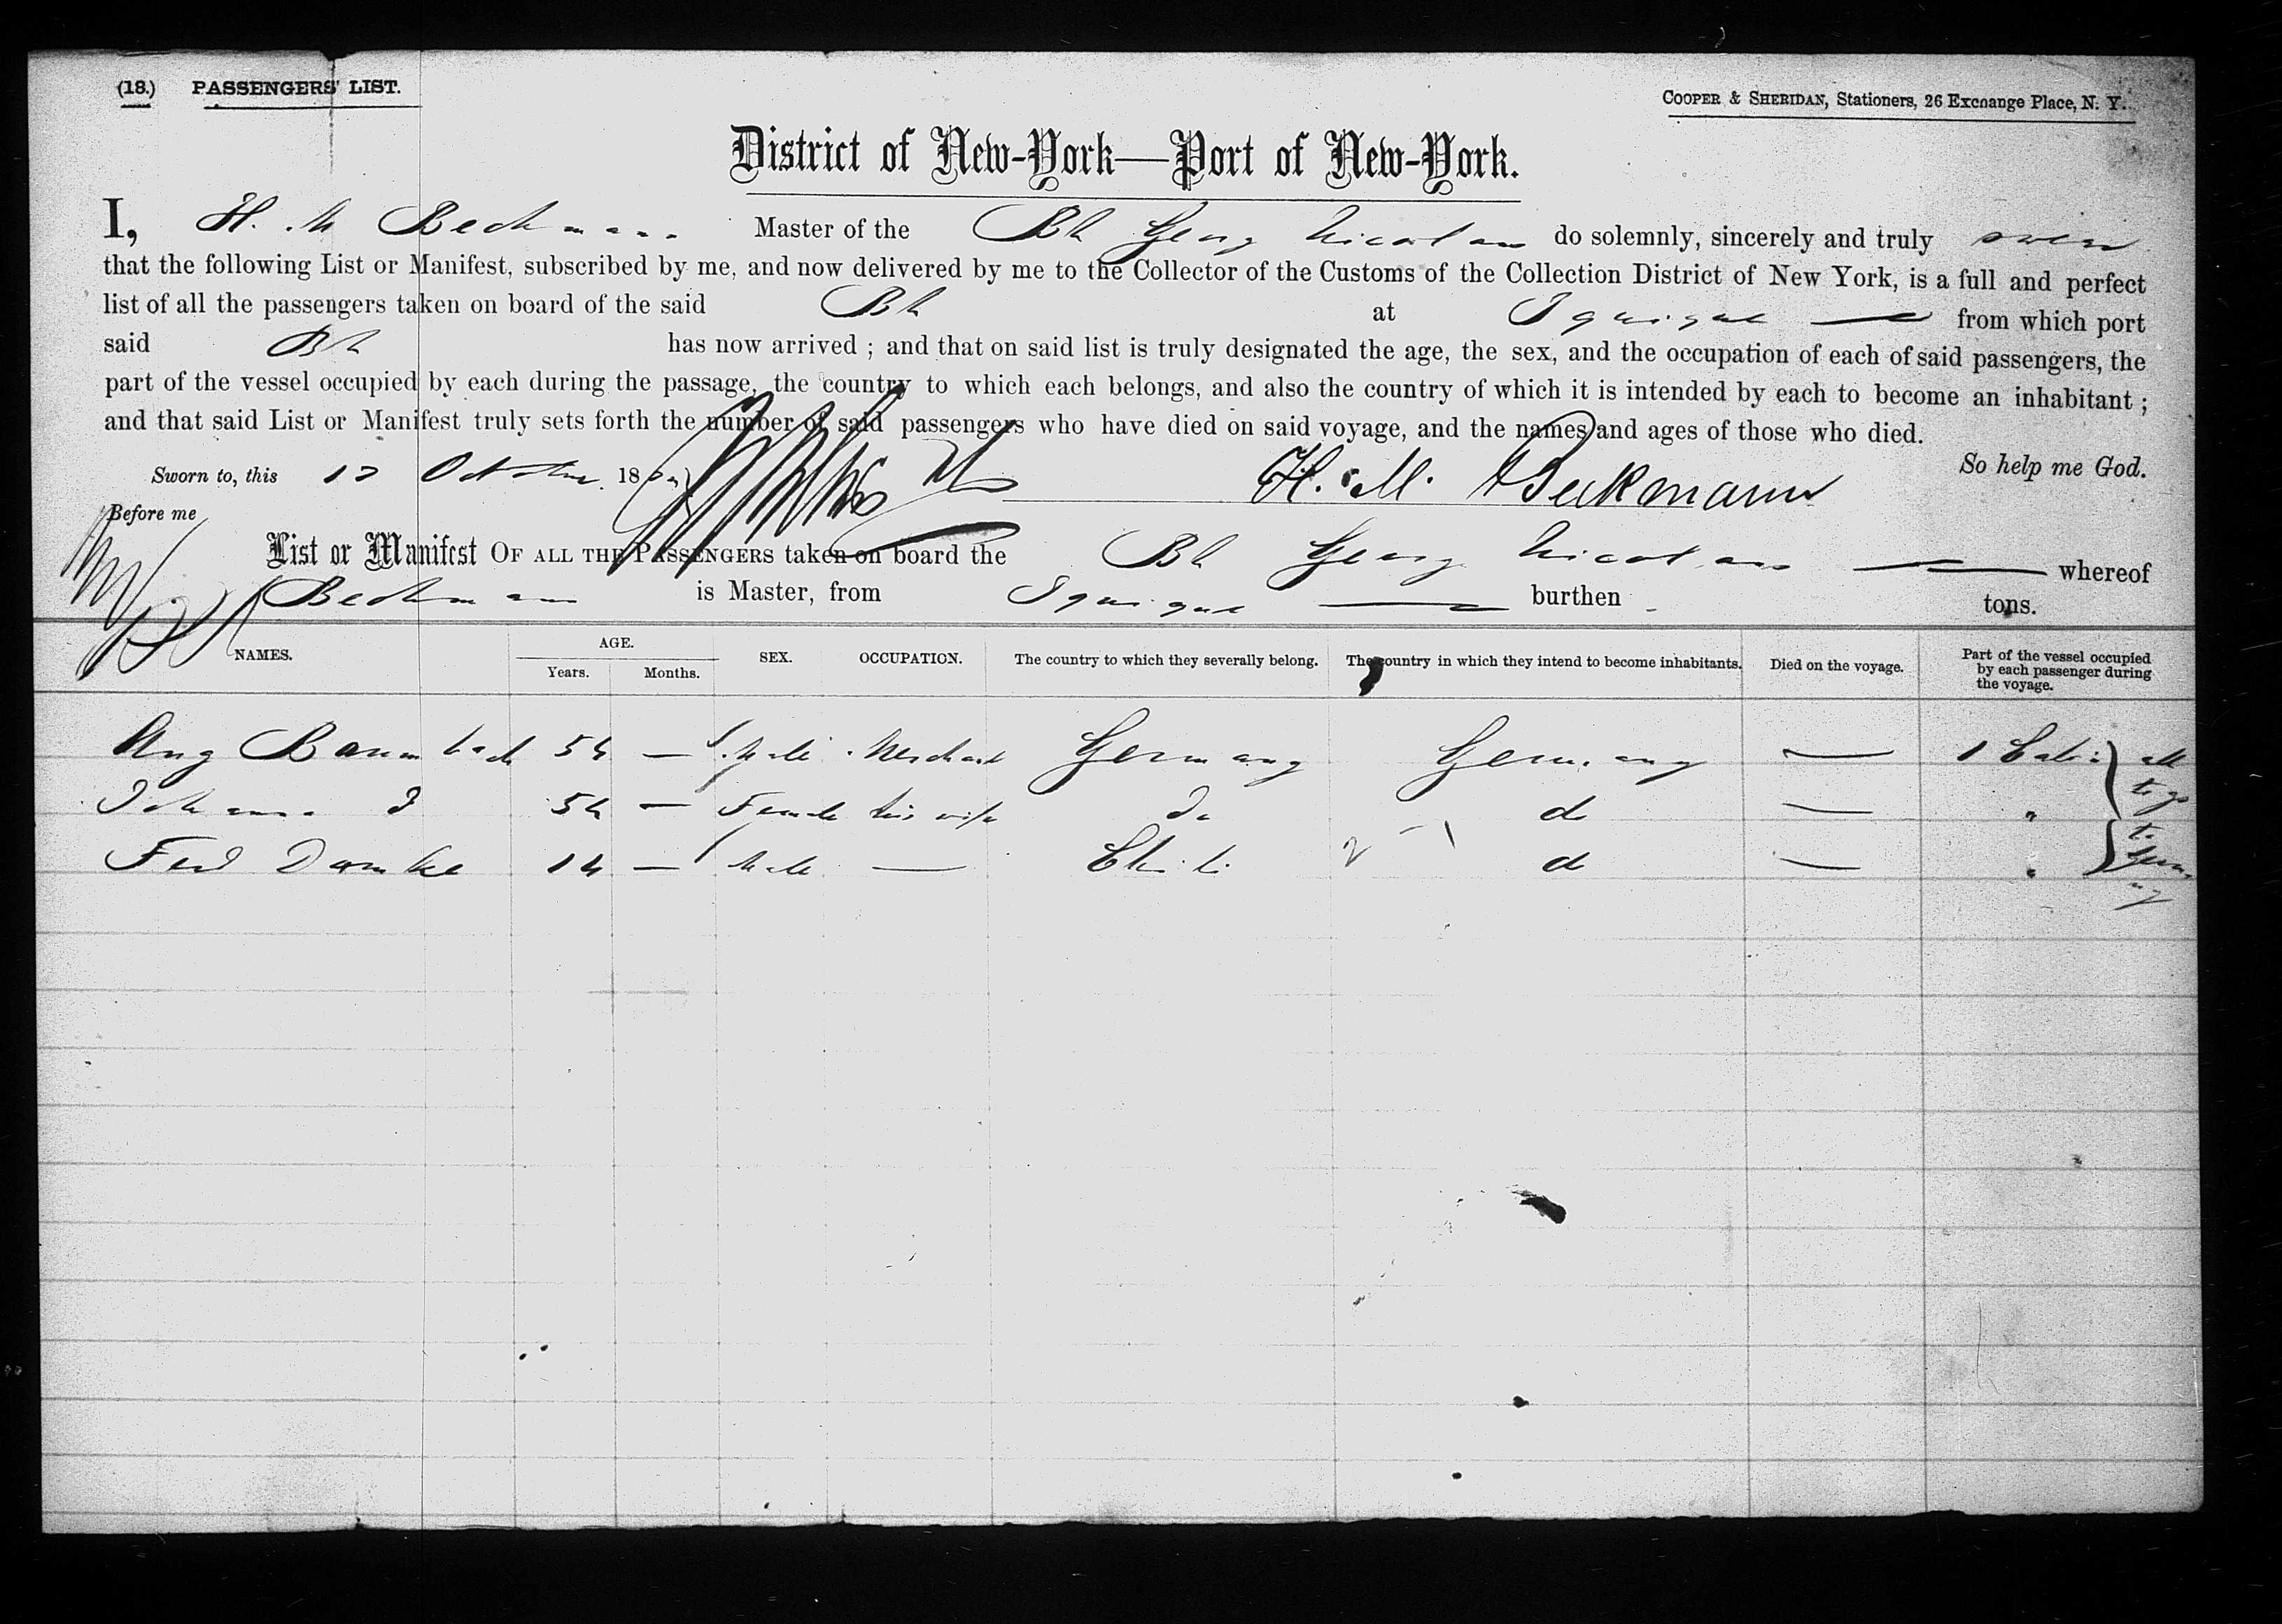 (18.) PASSENGERS' LIST.
COOPER & SHERIDAN, Stationers, 26 Exchange Place, N. Y.
District of New-York—Port of New-York.
I, H. M Beckmann Master of the Bk Georg Nicolaus do solemnly, sincerely and truly swear
that the following List or Manifest, subscribed by me, and now delivered by me to the Collector of the Customs of the Collection District of New York, is a full and perfect
list of all the passengers taken on board of the said Bk at Iquique from which port
said Bk has now arrived ; and that on said list is truly designated the age, the sex, and the occupation of each of said passengers, the
part of the vessel occupied by each during the passage, the country to which each belongs, and also the country of which it is intended by each to become an inhabitant ;
and that said List or Manifest truly sets forth the number of said passengers who have died on said voyage, and the names and ages of those who died.
So help me God.
Sworn to, this October 18 H. M. Beckmann
Before me
List or Manifest OF ALL THE PASSENGERS taken on board the Bk Georg Nicolaus — whereof
Beckmann is Master, from Iquique — burthen tons.
NAMES. AGE. Years. Months. SEX. OCCUPATION. The country to which they severally belong. The country in which they intend to become inhabitants. Died on the voyage. Part of the vessel occupied by each passenger during the voyage.
Aug Baumbach 54 — Male Merchant Germany Germany — 1 Cabin all to go
Johanna d 54 — Female his wife do do — "
Ferd Damke 14 — Male — Chili do — " to Germany